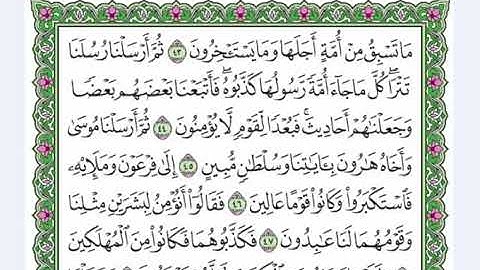 مَا تَسْبِقُ مِنْ أُمَّةٍ أَجَلَهَا وَمَا يَسْتَـْٔخِرُونَ ٤٣ ثُمَّ أَرْسَلْنَا رُسُلَنَا
تَتْرَا ۖ كُلَّ مَا جَآءَ أُمَّةً رَّسُولُهَا كَذَّبُوهُ ۚ فَأَتْبَعْنَا بَعْضَهُم بَعْضًا
وَجَعَلْنَٰهُمْ أَحَادِيثَ ۚ فَبُعْدًا لِّقَوْمٍ لَّا يُؤْمِنُونَ ٤٤ ثُمَّ أَرْسَلْنَا مُوسَىٰ
وَأَخَاهُ هَٰرُونَ بِـَٔايَٰتِنَا وَسُلْطَٰنٍ مُّبِينٍ ٤٥ إِلَىٰ فِرْعَوْنَ وَمَلَإِي۟هِۦ
فَٱسْتَكْبَرُوا۟ وَكَانُوا۟ قَوْمًا عَالِينَ ٤٦ فَقَالُوٓا۟ أَنُؤْمِنُ لِبَشَرَيْنِ مِثْلِنَا
وَقَوْمُهُمَا لَنَا عَٰبِدُونَ ٤٧ فَكَذَّبُوهُمَا فَكَانُوا۟ مِنَ ٱلْمُهْلَكِينَ